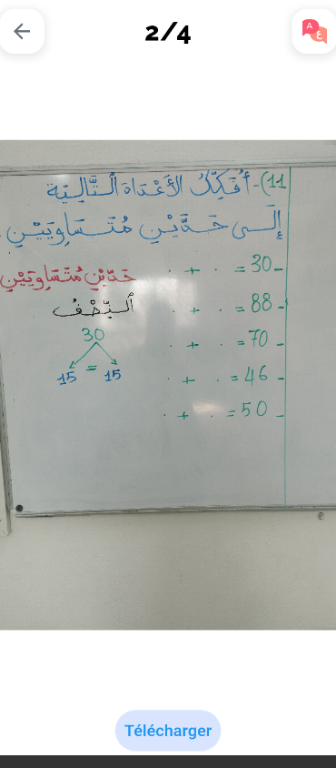 2/4
11)- أُفَكِّكُ الأَعْدَادَ التَّالِيَةَ
إِلَى حَدَّيْنِ مُتَسَاوِيَيْنِ
- 30 = . + .
حَدَّيْنِ مُتَسَاوِيَيْنِ
- 88 = . + .
النِّصْفُ
- 70 = . + .
30
- 46 = . + .
15 = 15
- 50 = . + .
Télécharger